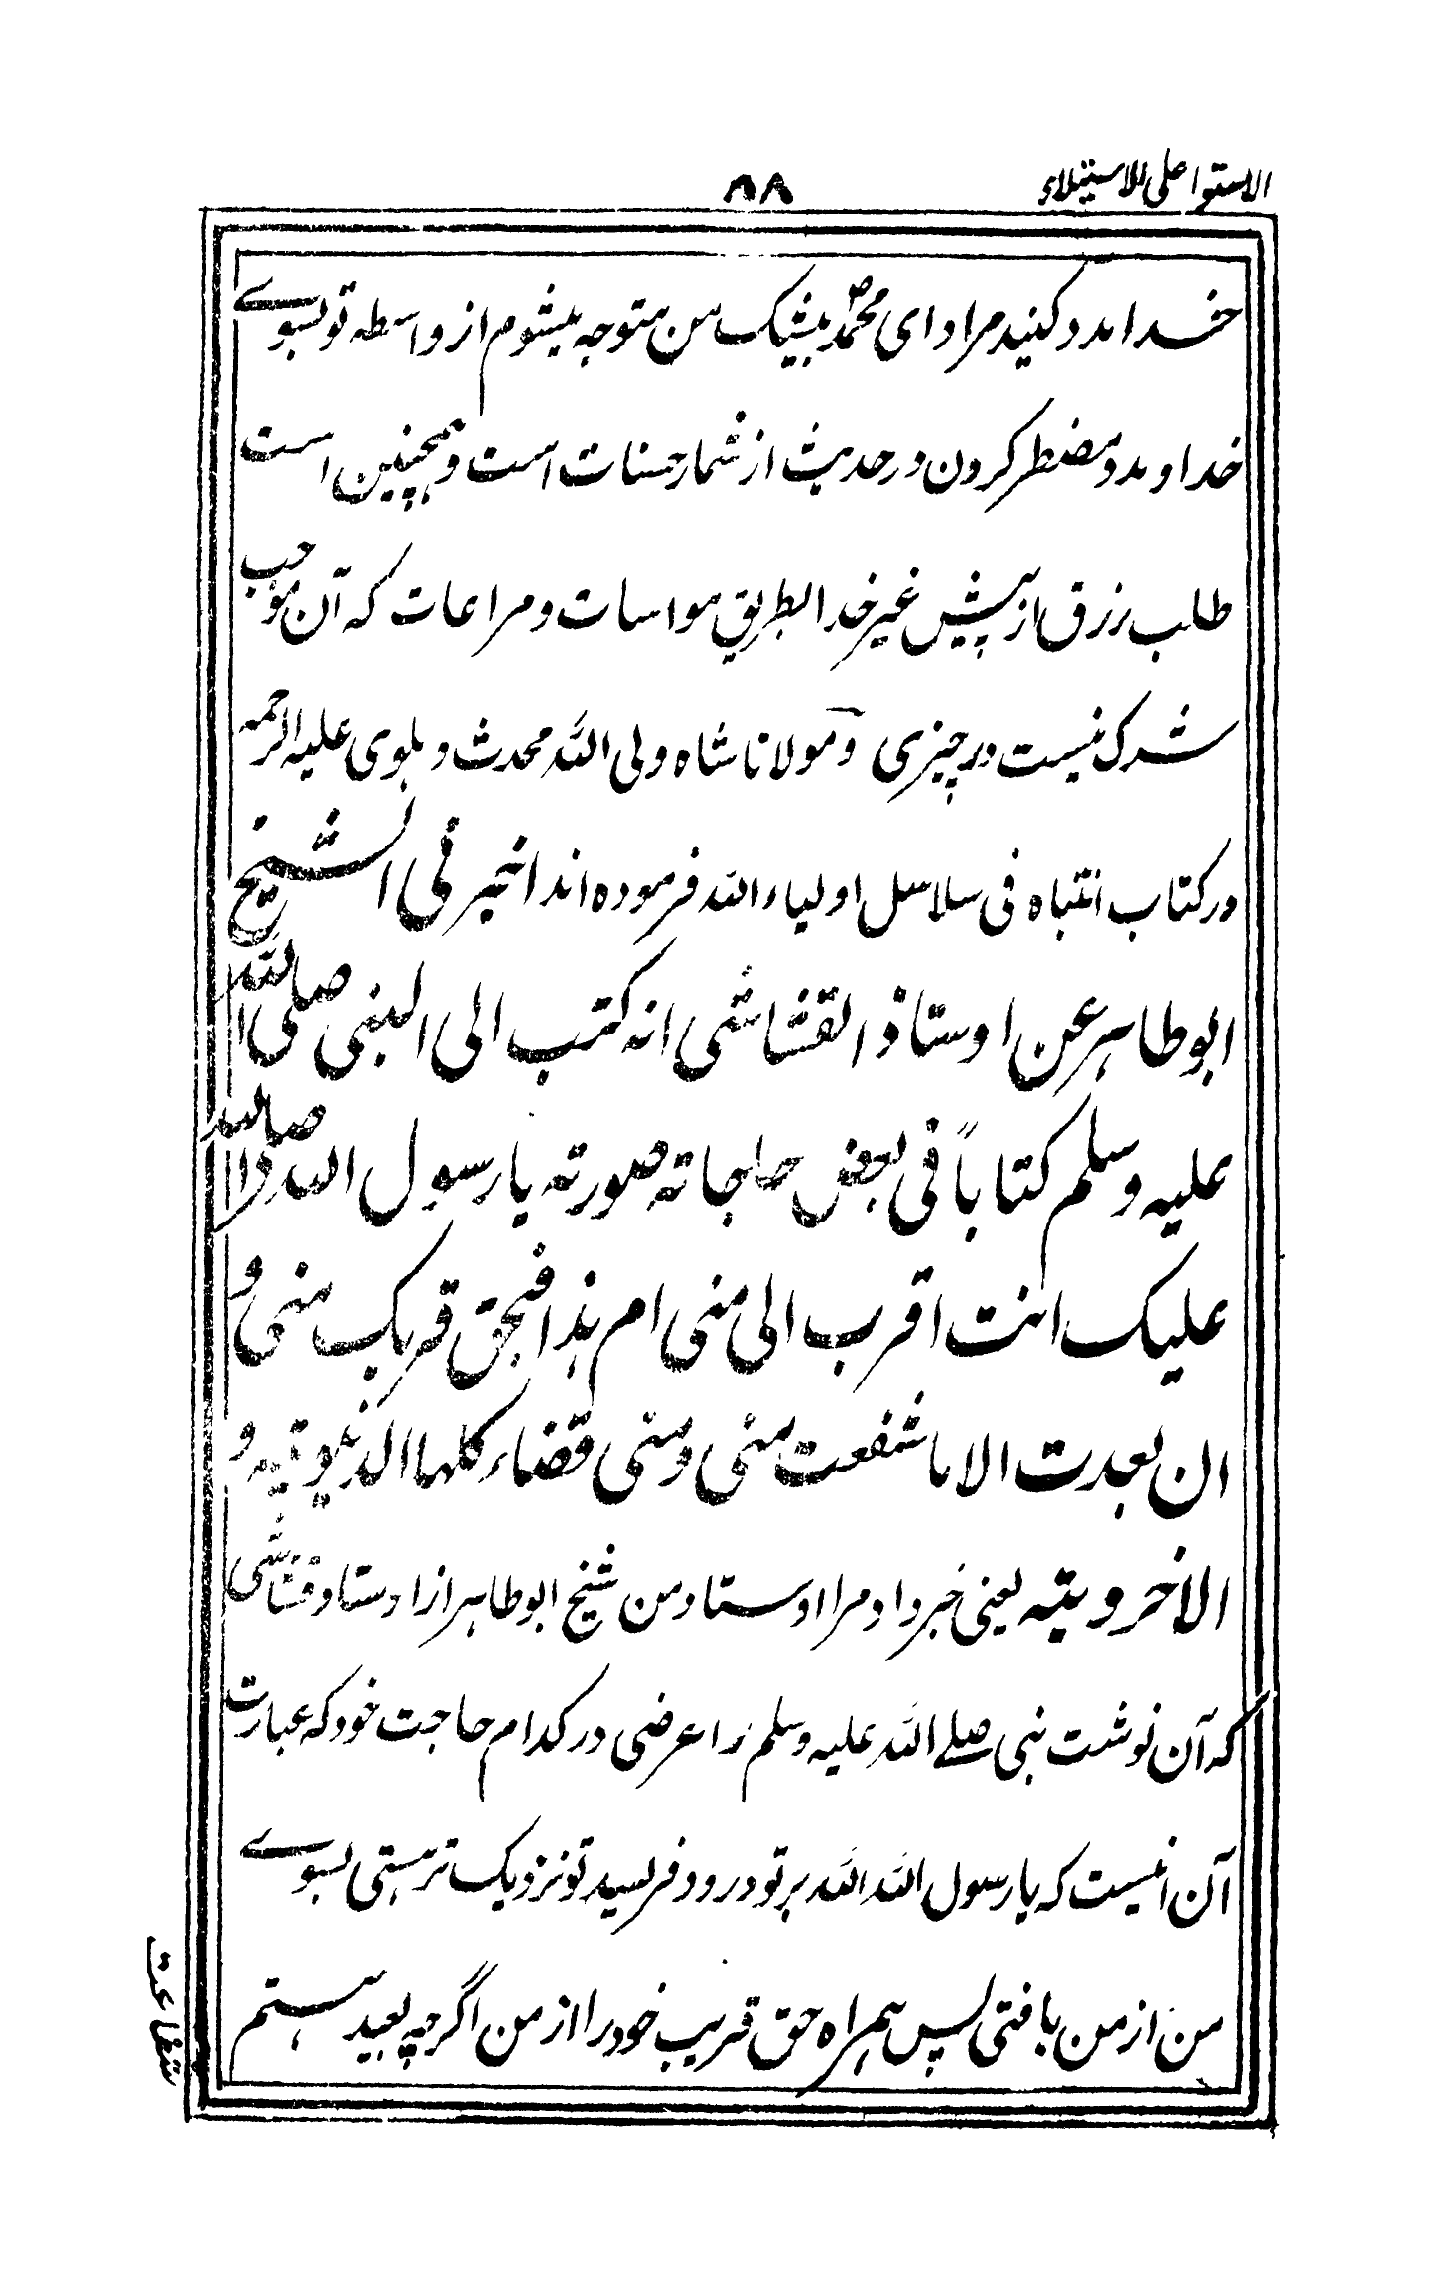 الاستوا علی الاستیلاء
۵۸
خدا مدد کنید مرا و ای محمدؐ بیشک من متوجه میشوم از واسطه تو بسوے
خدا و مدد مضطر کردن در حدیث از شمار حسنات است و همچنین است
طلب رزق از پیش غیر خدا بطریق مواسات و مراعات که آن موجب
شرک نیست در چیزی و مولانا شاه ولی الله محدث دهلوی علیه الرحمه
در کتاب انتباه فی سلاسل اولیاء الله فرموده اند اخبر فی الشیخ
ابو طاهر عن اوستاذ القشاشی انه کتب الی النبی صلی الله
علیه وسلم کتاباً فی بعض حاجاته صورته یا رسول الله صلی الله
علیک انت اقرب الی منی ام هذا فبحق قربک منی و
ان بعدت الا ما شفعت منی ومنی قضاء کلها الدنیویه و
الاخرویته یعنی خبر داد مرا اوستاد من شیخ ابو طاهر از اوستاد قشاشی
که آن نوشت نبی صلے الله علیه وسلم را عرضی در کدام حاجت خود که عبارت
آن اینست که یا رسول الله الله بر تو درود فریسید تو نزدیک تر هستی بسوے
من از من یافتی پس همراه حق قریب خود را از من اگرچه بعید هستم
شفاعت